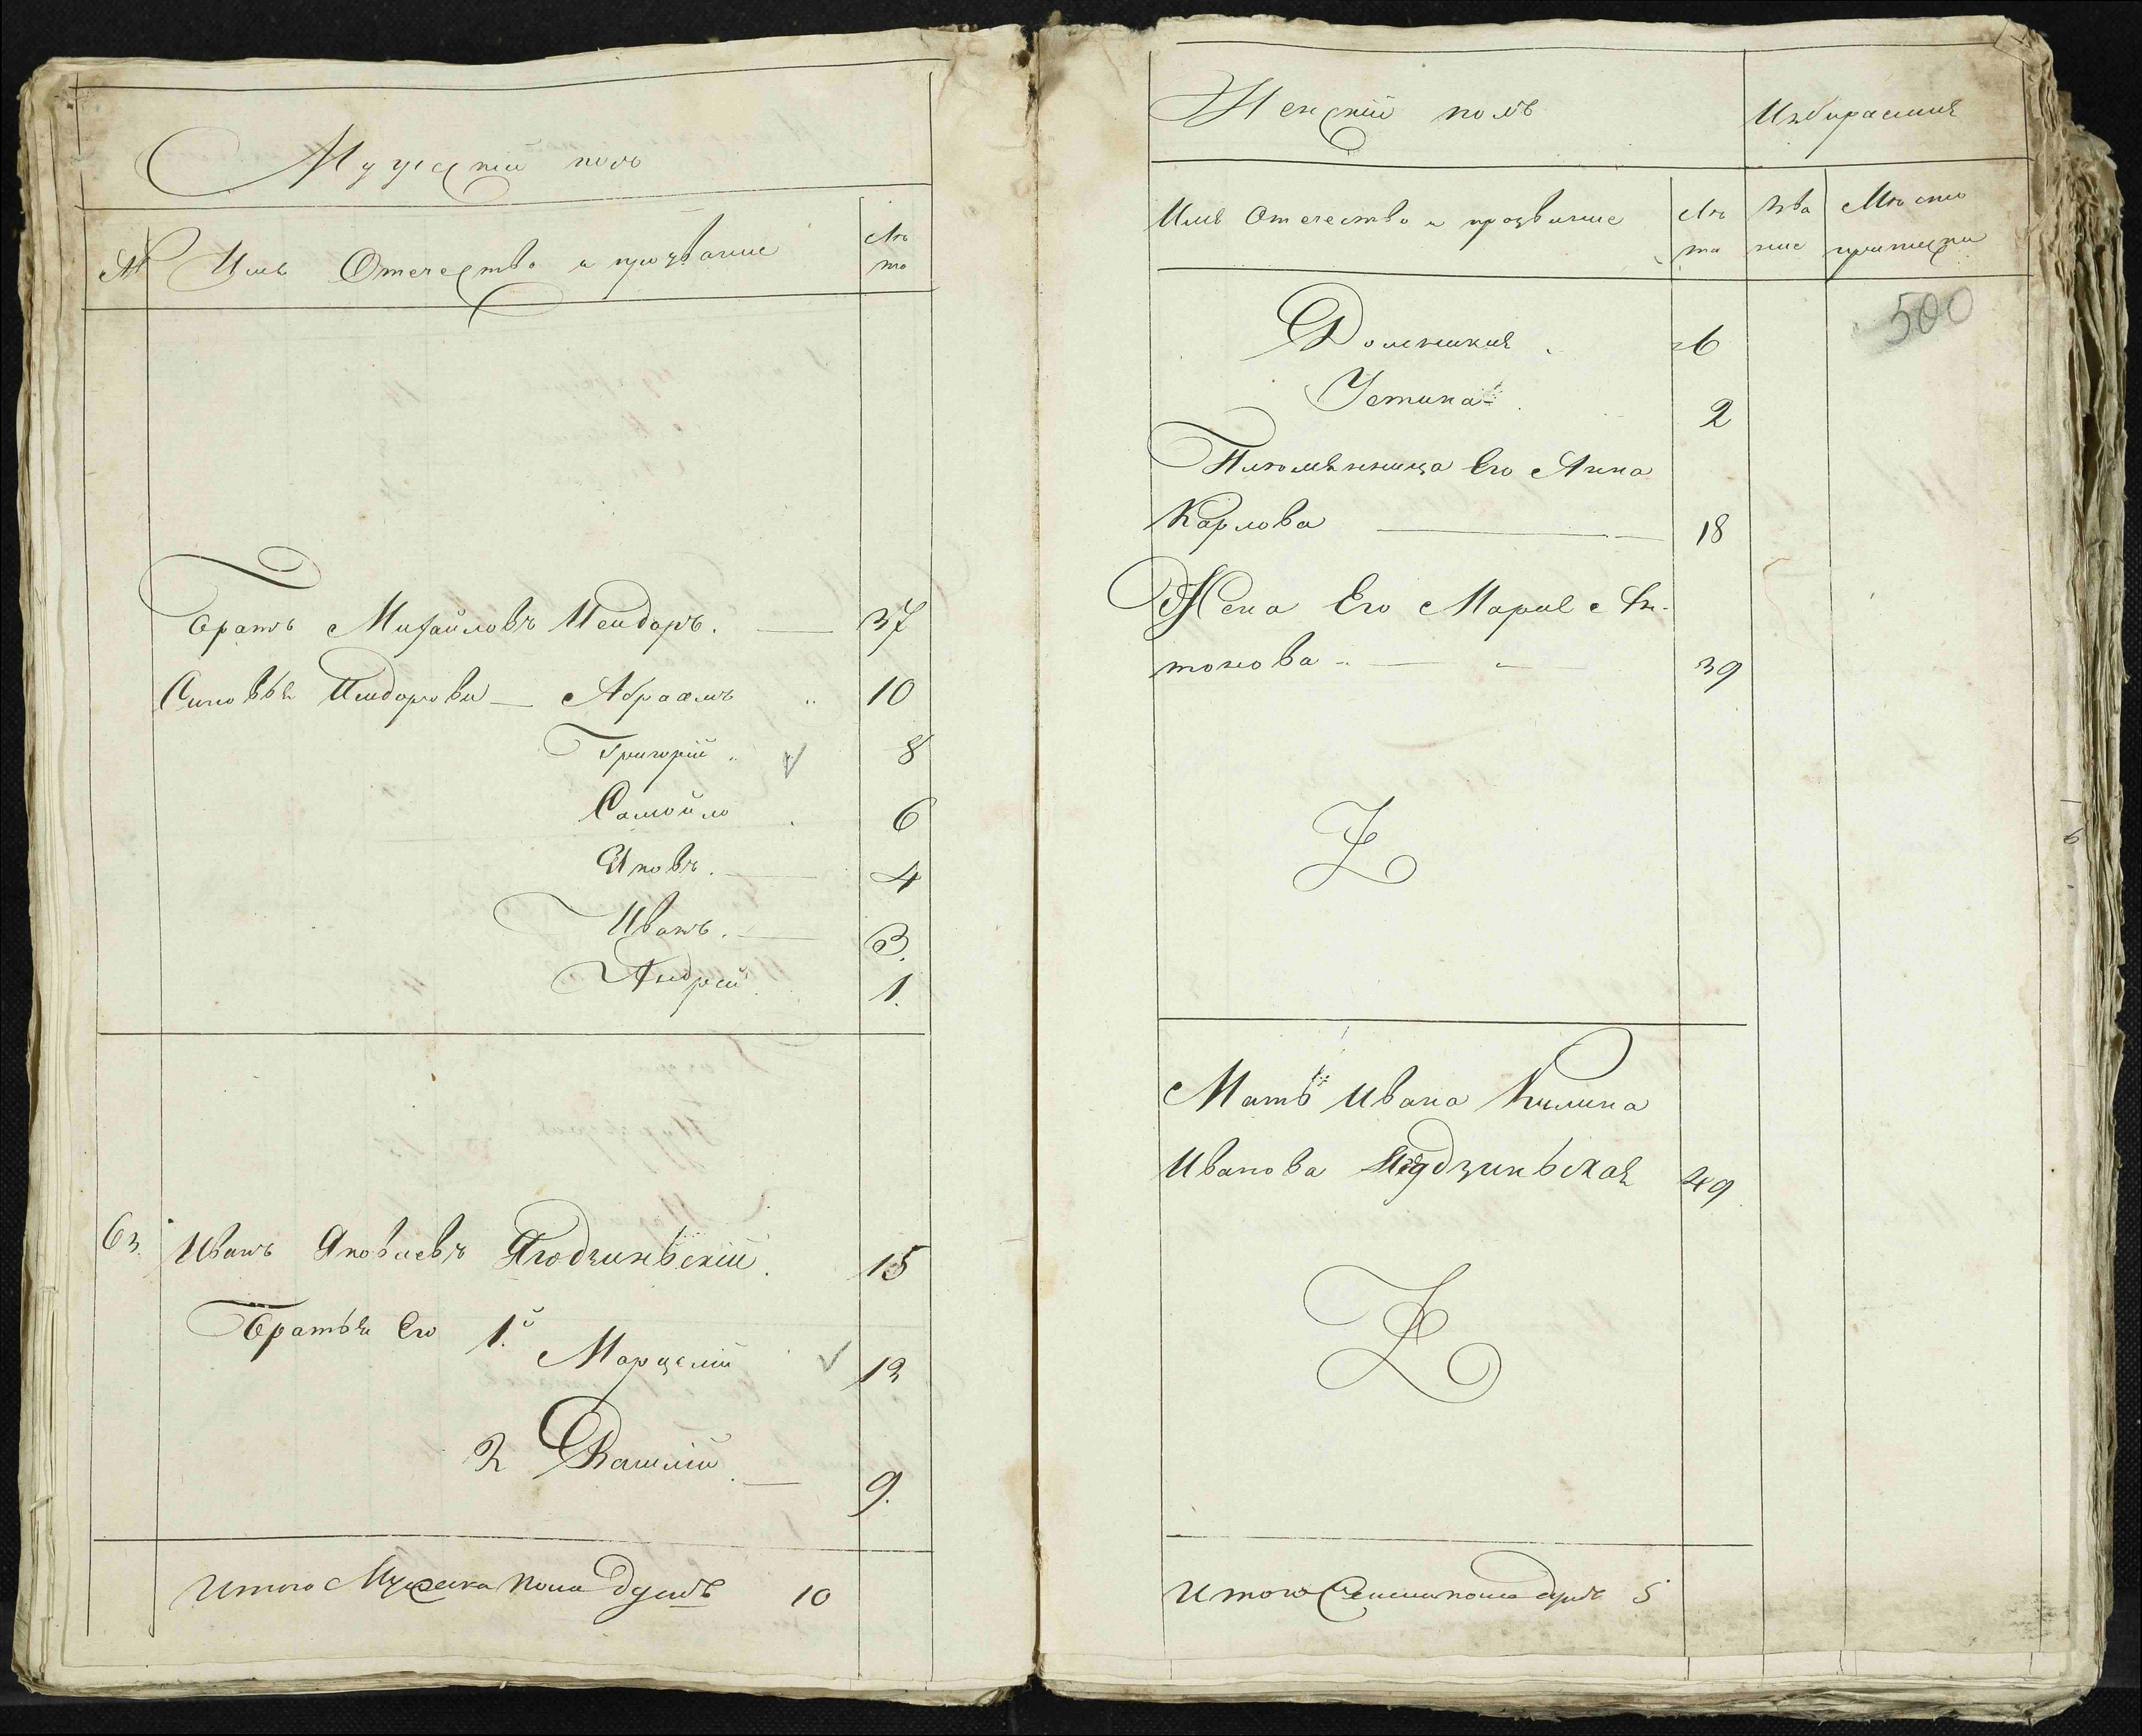 Мужескій полъ
№ Имя Отечество и прозвание Лѣ
та
Братъ Михайловъ Исидоръ. 37
Сыновья Исидоровы Абраамъ 10
Григорій 8
Самойло 6
Яковъ. 4
Иванъ. 3.
Андрей 1.
63. Иванъ Яковлевъ Ягодзиньскій. 15
Братья Его 1.й Марцелій 13
2 Василій 9.
Итого Мужеска пола душъ 10
Женскій полъ
Имя Отечество и прозвание Лѣ Зва Мѣсто
та ние приписки
500
Доминикия 6
Устина 2
Племянница Его Анна
Карлова 18
Жена Его Мария Ан-
тонова 39
Мать Ивана Килина
Иванова Ягодзиньская 49
Итого Женска пола душъ 5